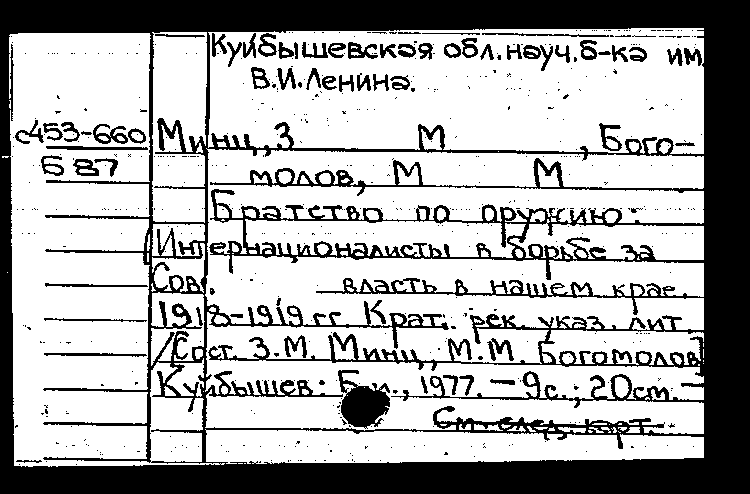 Куйбышевская обл. науч. б-ка им.
В.И.Ленина.
с453-660 Минц, З М , Бого-
Б 87 молов, М М
Братство по оружию:
Интернационалисты в борьбе за
Сов. власть в нашем крае.
1918-1919 гг Крат. рек. указ. лит.
/Сост. З.М. Минц, М.М. Богомолов]
Куйбышев: Б.и., 1977. - 9с.; 20см. -
См. след. карт.